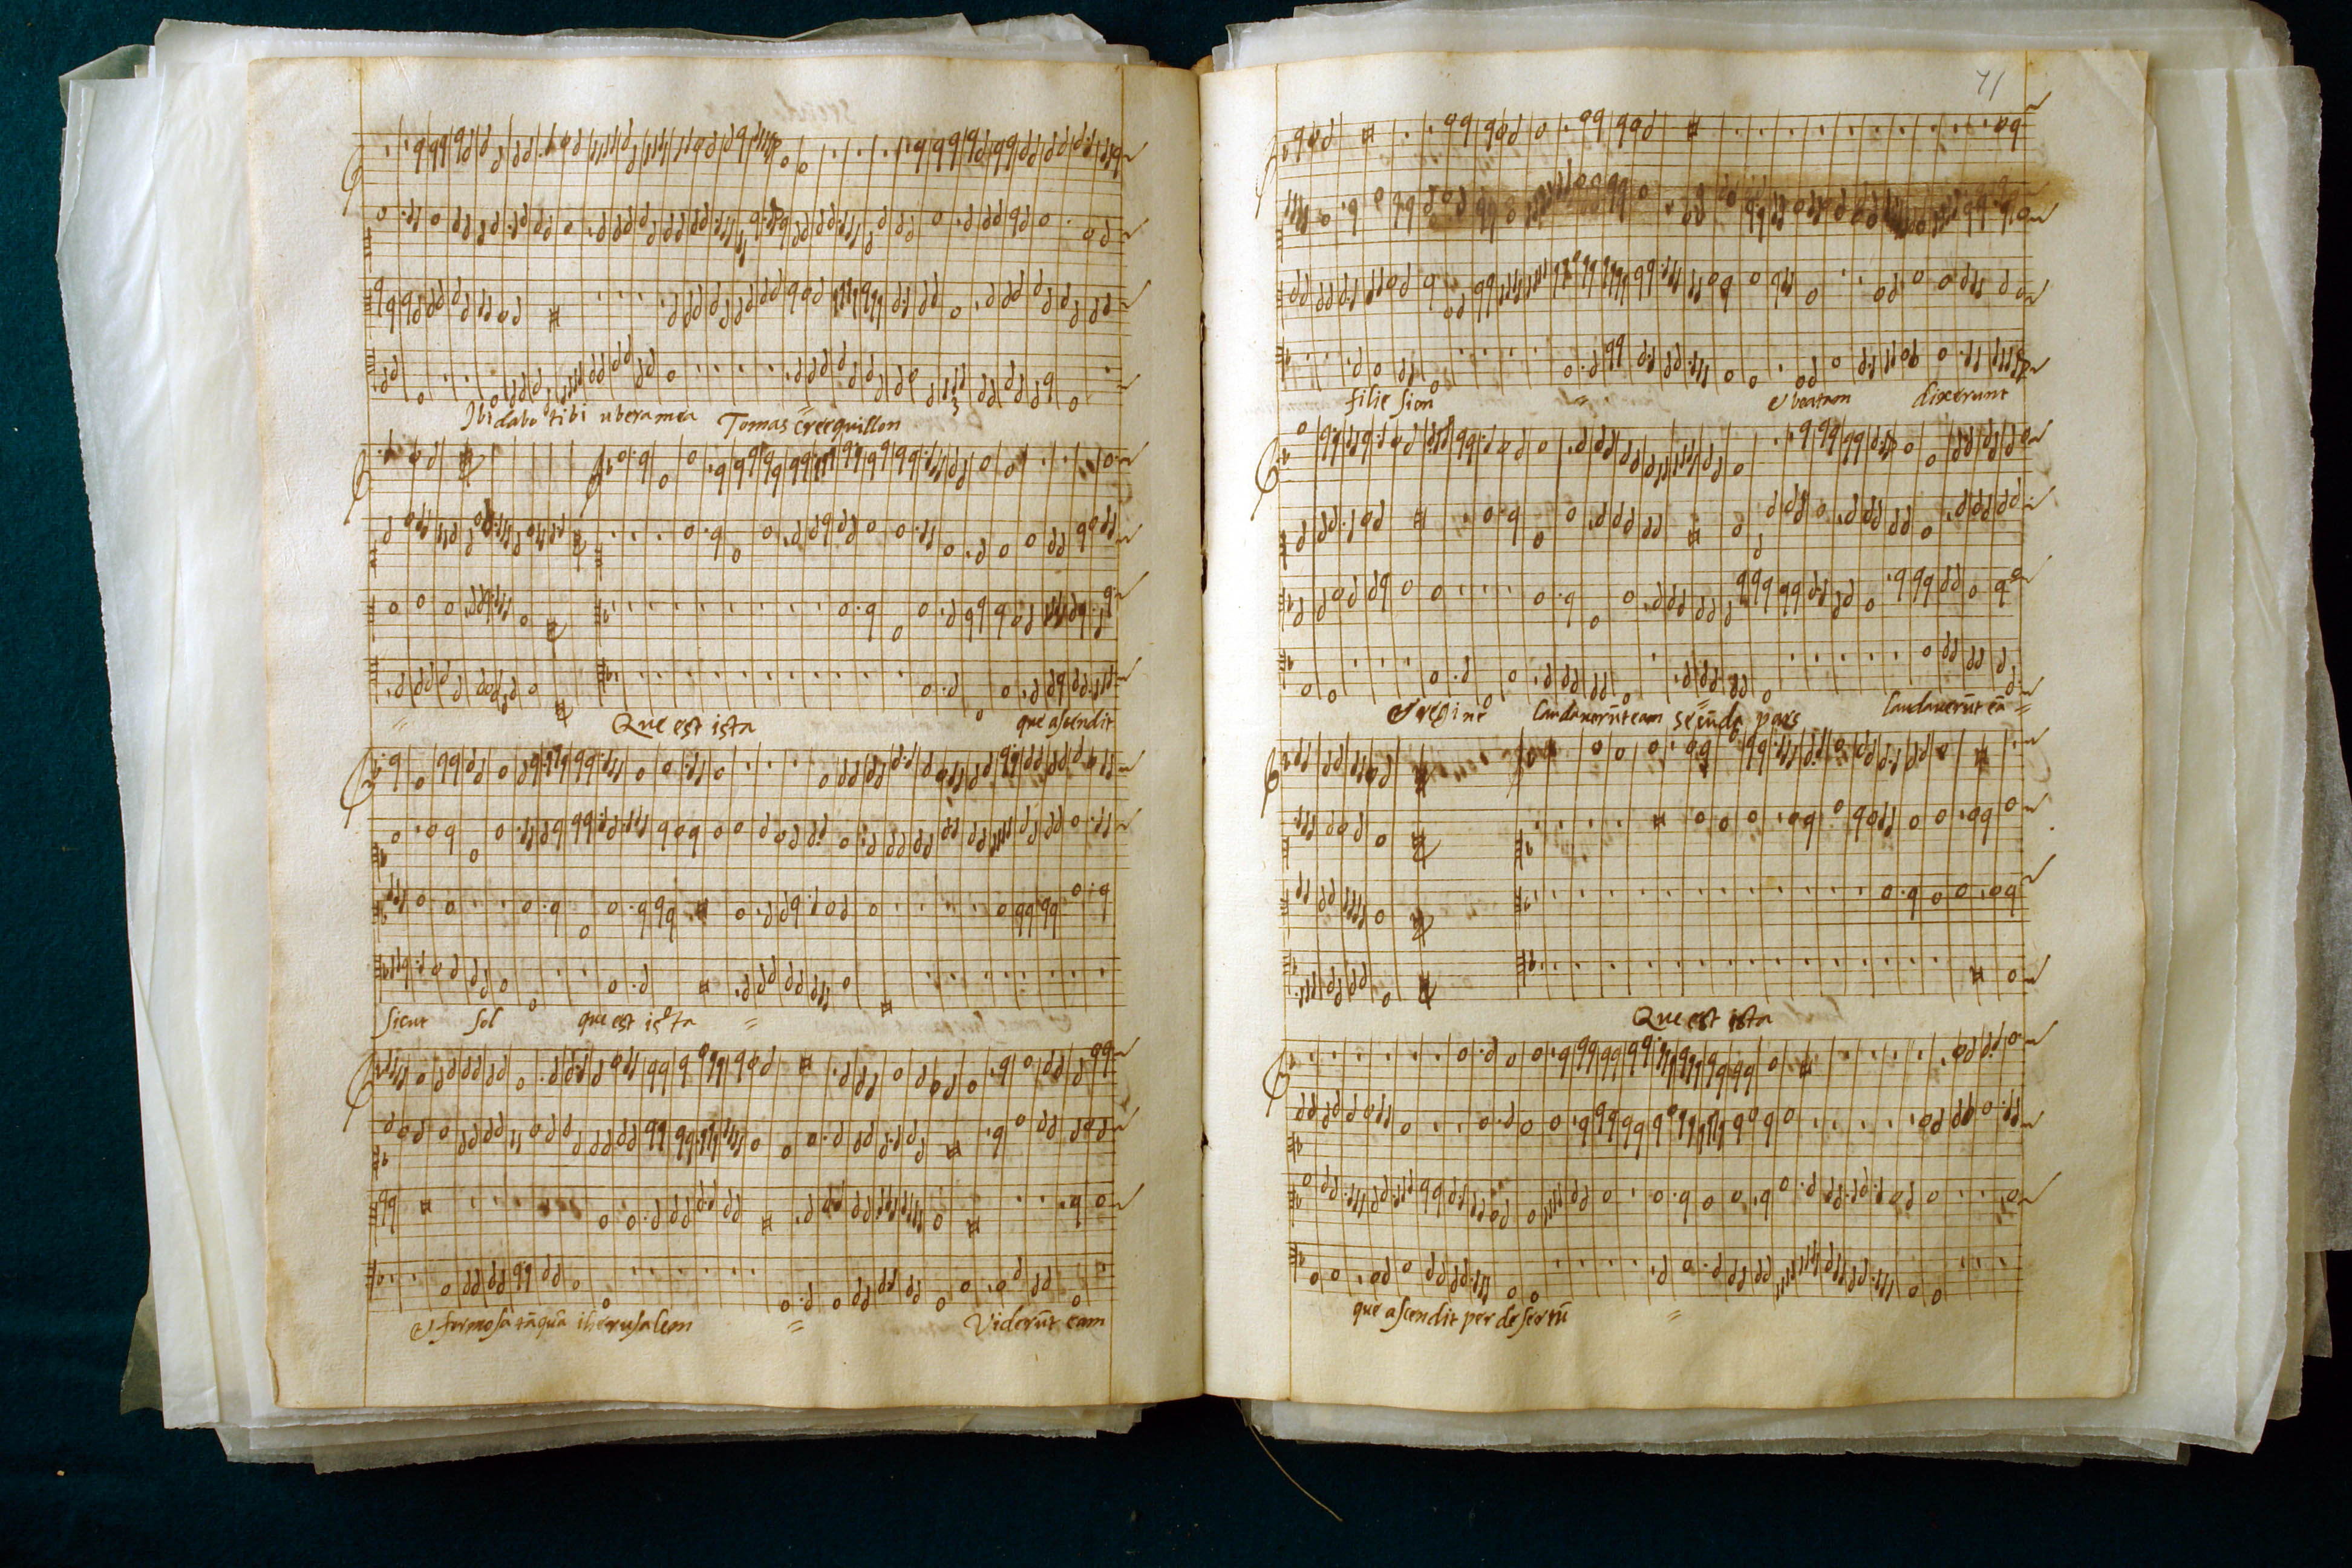 Ibi dabo tibi ubera mea Tomas crecquillon
=
Que est ista que ascendit
Sicut sol que est ista =
& formosa tāquā iherusalem = Viderūt eam
71
filie sion = & beatam dixerunt
& regine laudauerūt eam secūda pars laudauerūt eā =
Que est ista
que ascendit per desertū =